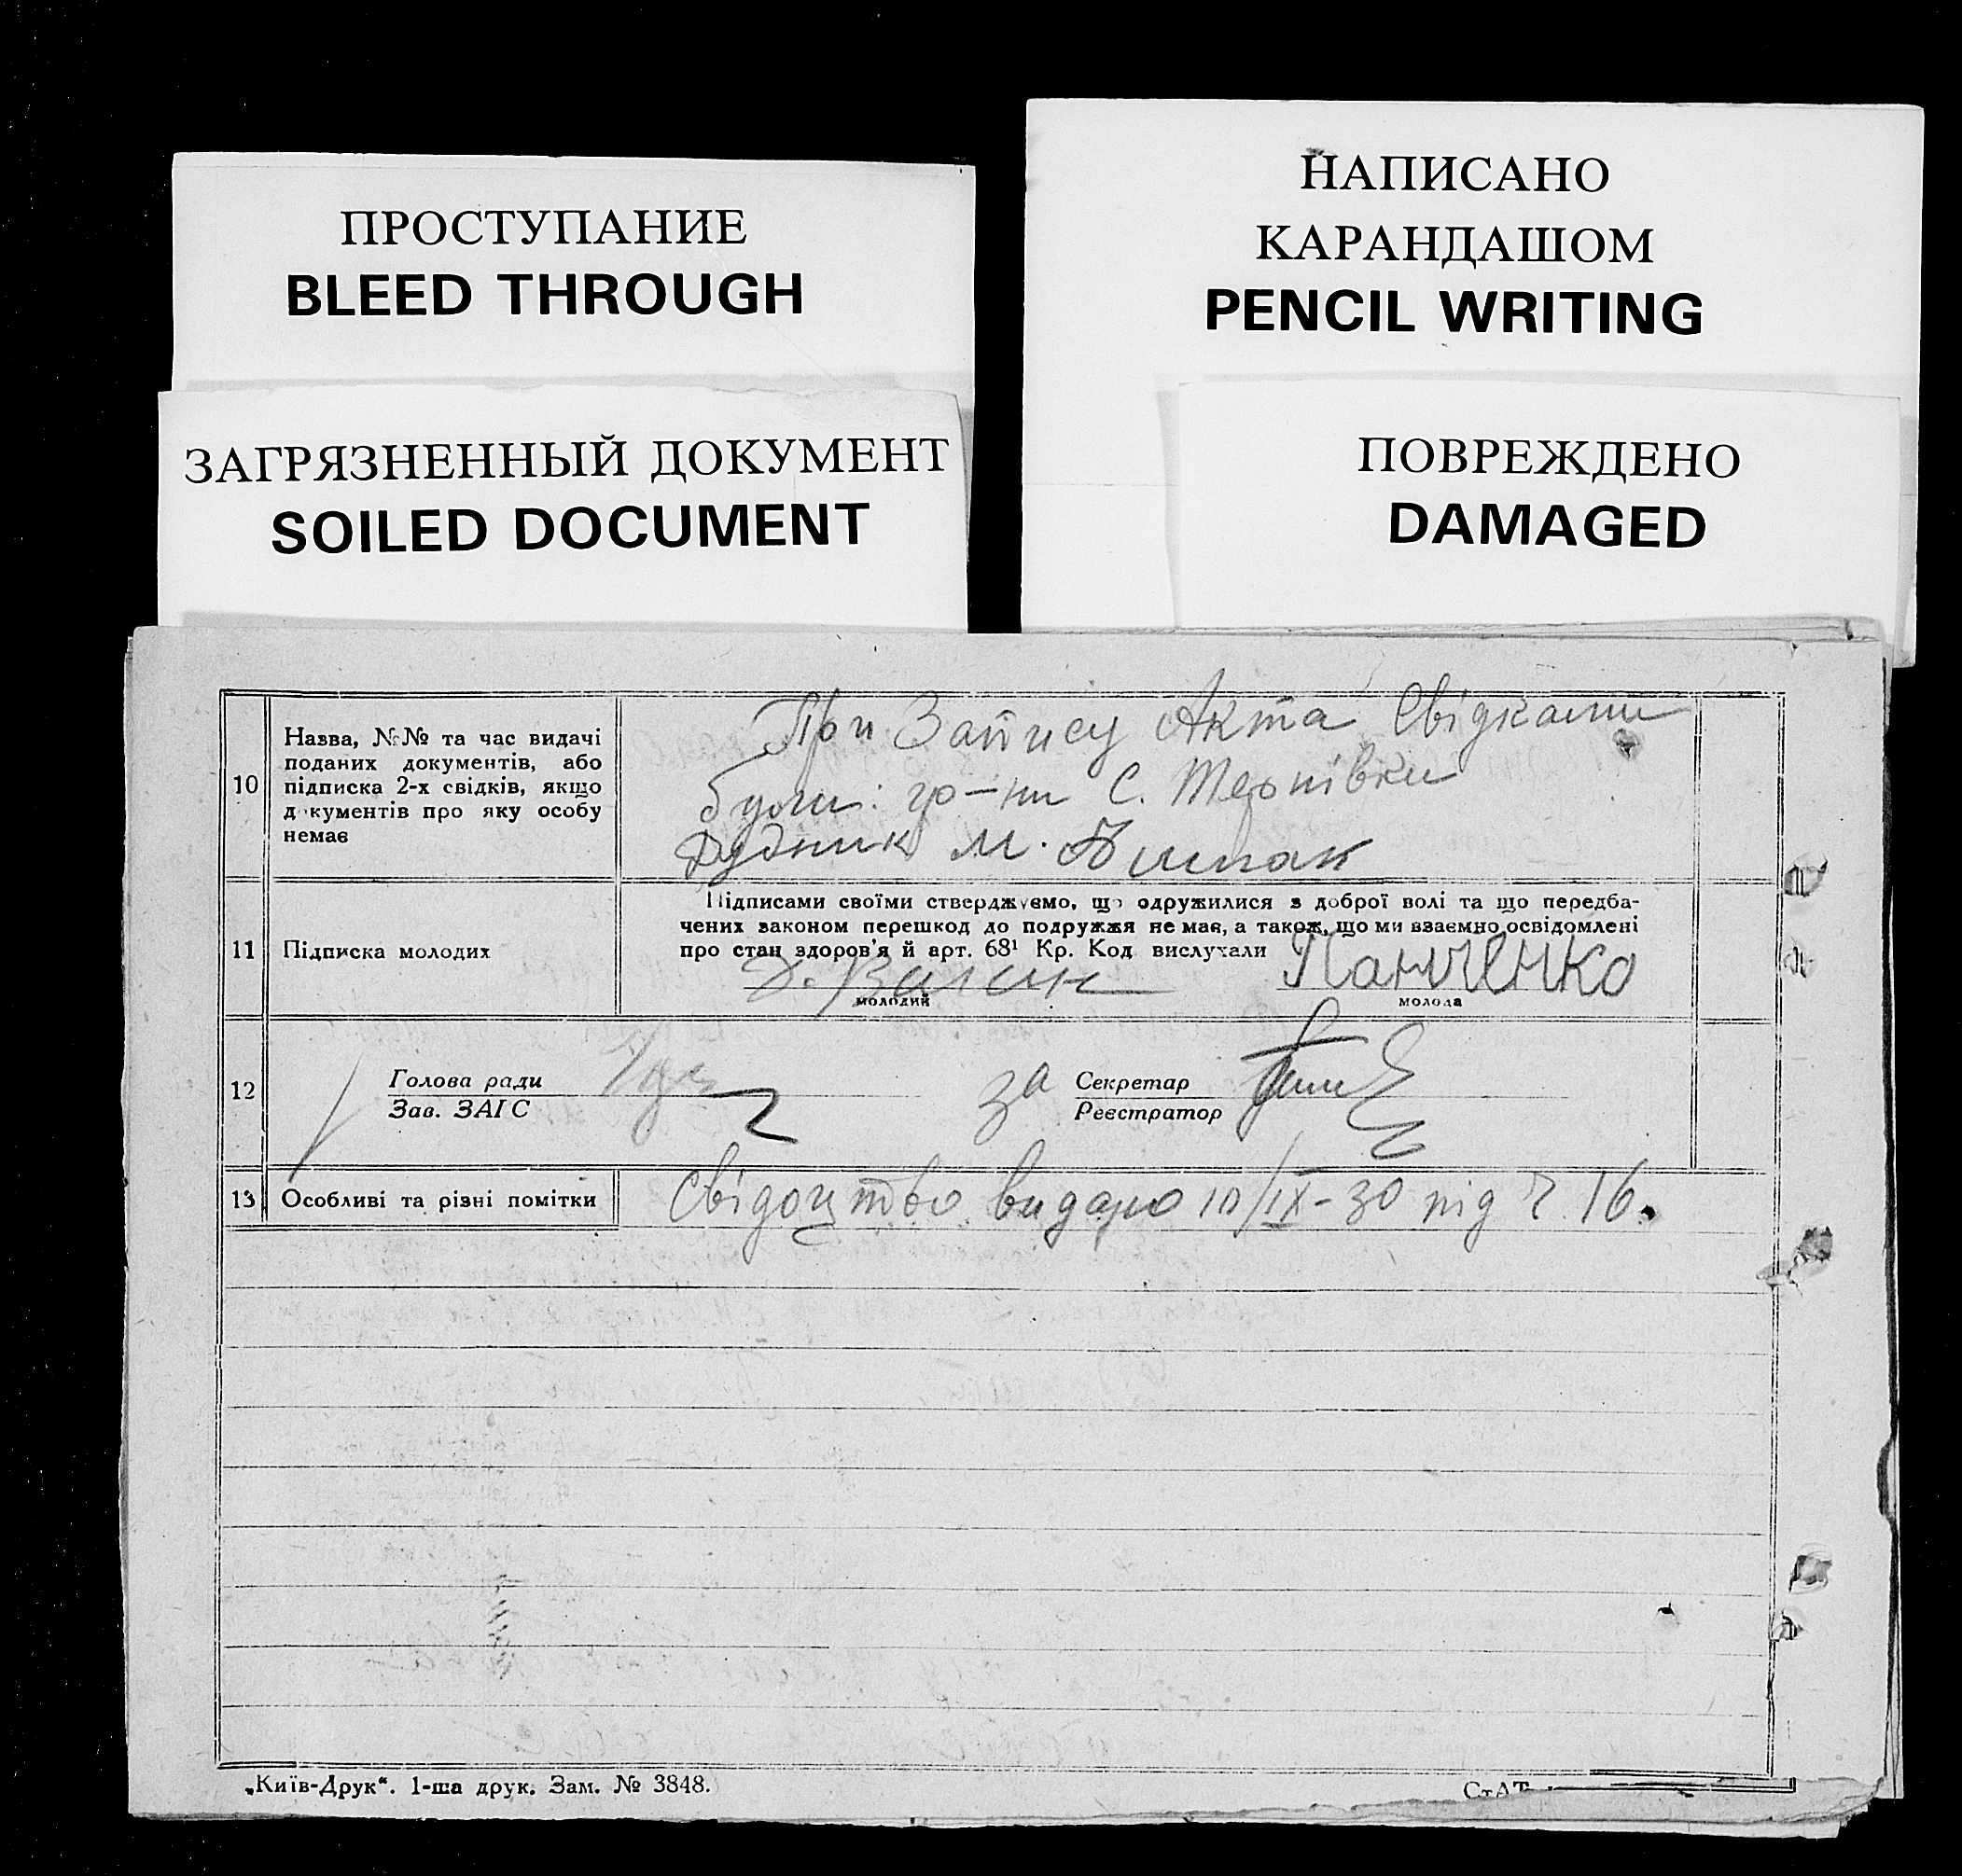 ПРОСТУПАНИЕ
BLEED THROUGH
НАПИСАНО
КАРАНДАШОМ
PENCIL WRITING
ЗАГРЯЗНЕННЫЙ ДОКУМЕНТ
SOILED DOCUMENT
ПОВРЕЖДЕНО
DAMAGED
10
Назва, №№ та час видачі
поданих документів, або
підписка 2-х свідків, якщо
документів про яку особу
немає
При Запису Акта Свідками
були: гр-ни С. Терпівки
Дудник М.
11
Підписка молодих
Підписами своїми стверджуємо, що одружилися з доброї волі та що передба-
чених законом перешкод до подружжя не має, а також, що ми взаємно освідомлені
про стан здоров'я й арт. 68¹ Кр. Код вислухали
Панченко
молодий
молода
12
Голова ради
Зав. ЗАГС
за
Секретар
Реєстратор
13
Особливі та різні помітки
Свідоцтво видано 10/IX-30 під Ч. 16.
„Київ-Друк“. 1-ша друк. Зам. № 3848.